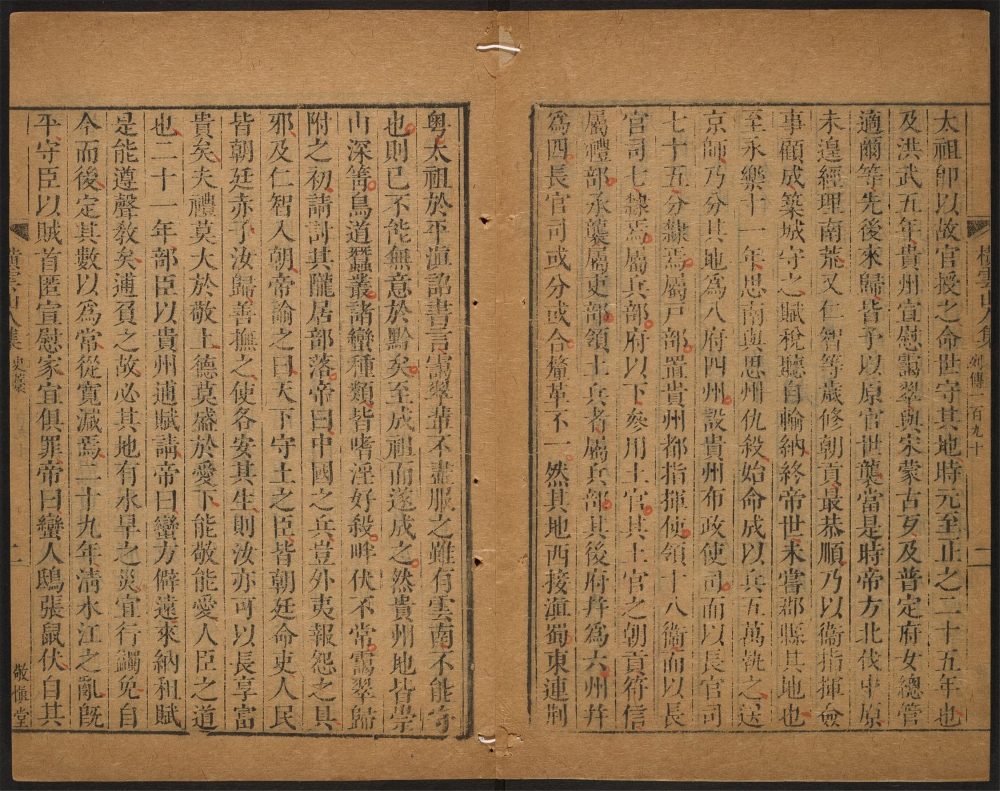 太祖卽以故官授之命世守其地時元至正之二十五年也
及洪武五年貴州宣慰靄翠與宋蒙古歹及普定府女總管
適爾等先後來歸皆予以原官世襲當是時帝方北伐中原
未遑經理南荒又仁智等歲修朝貢最恭順乃以衞指揮僉
事顧成築城守之賦稅聽自輸納終帝世未嘗郡縣其地也
至永樂十一年思南與思州仇殺始命成以兵五萬執之送
京師乃分其地爲八府四州設貴州布政使司而以長官司
七十五分隸焉屬戶部置貴州都指揮使領十八衞而以長
官司七隸焉屬兵部府以下參用土官其土官之朝貢符信
屬禮部承襲屬吏部領土兵者屬兵部其後府幷爲六州幷
爲四長官司或分或合釐革不一然其地西接滇蜀東連荆
橫雲山人集
列傳一百九十
一
粤太祖於平滇詔書言靄翠輩不盡服之雖有雲南不能守
也則已不能無意於黔矣至成祖而遂成之然貴州地皆崇
山深箐鳥道蠶叢諸蠻種類皆嗜淫好殺畔伏不常靄翠歸
附之初請討其隴居部落帝曰中國之兵豈外夷報怨之具
邪及仁智入朝帝諭之曰天下守土之臣皆朝廷命吏人民
皆朝廷赤子汝歸善撫之使各安其生則汝亦可以長享富
貴矣夫禮莫大於敬上德莫盛於愛下能敬能愛人臣之道
也二十一年部臣以貴州逋賦請帝曰蠻方僻遠來納租賦
是能遵聲敎矣逋負之故必其地有水旱之災宜行蠲免自
今而後定其數以爲常從寬減焉二十九年淸水江之亂旣
平守臣以賊首匿宣慰家宜俱罪帝曰蠻人鴟張鼠伏自其
橫雲山人集
史藁
二
敬愼堂